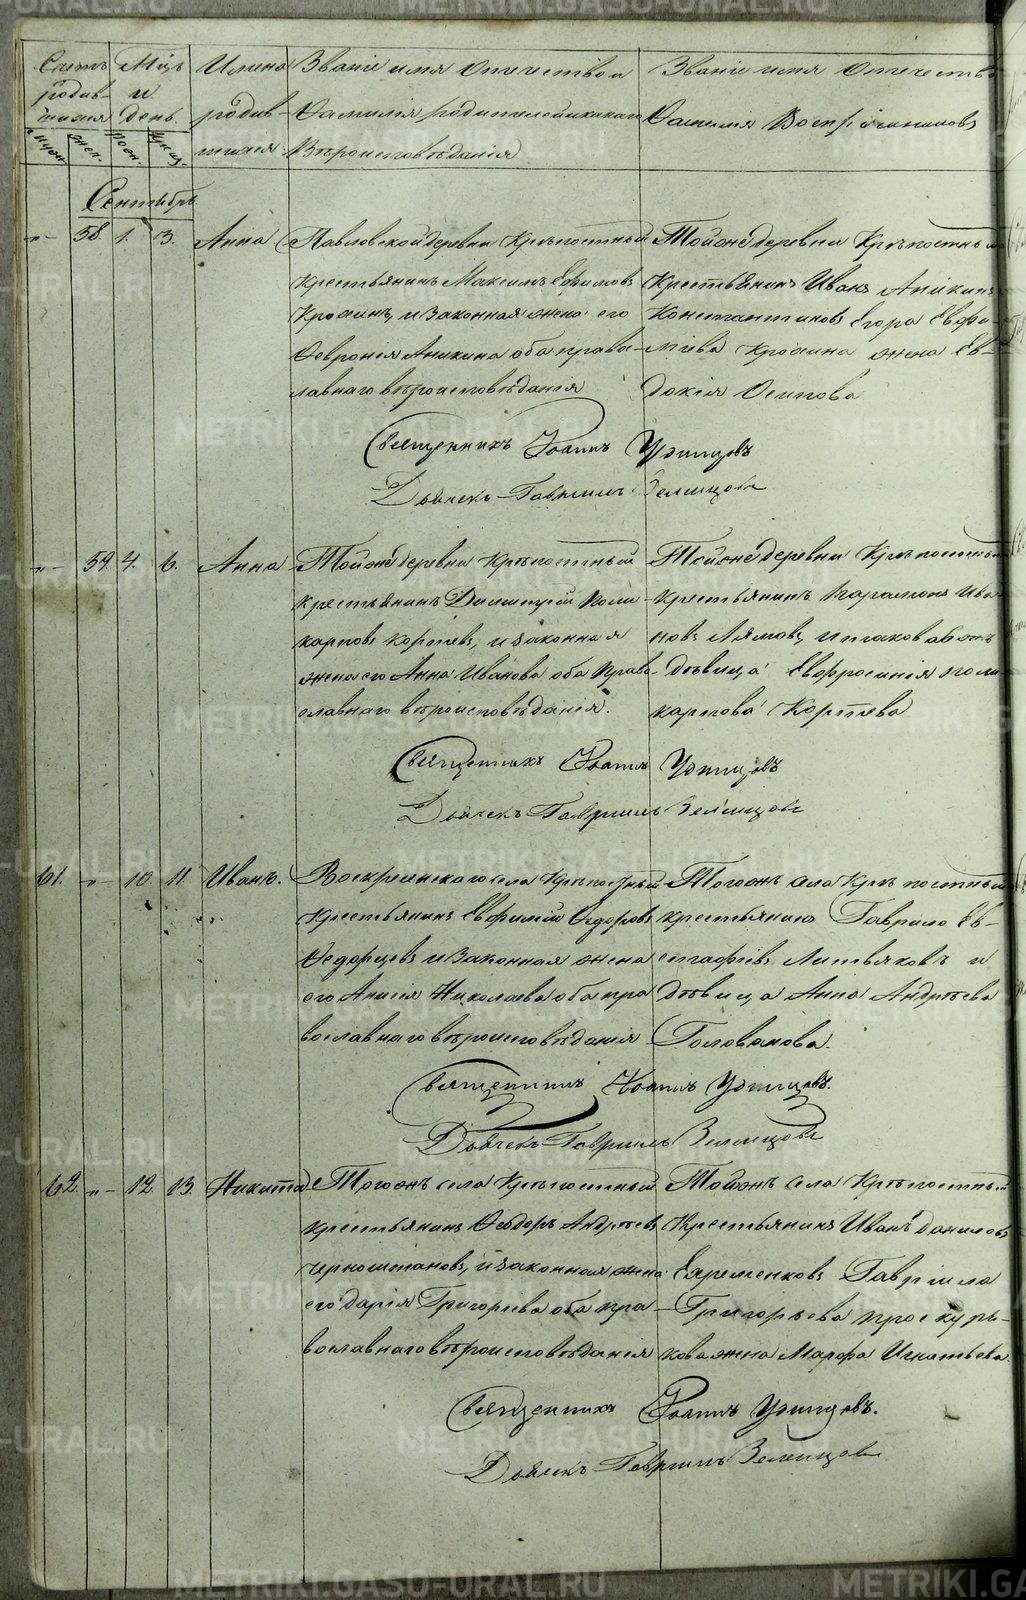 Счетъ родив-шихся
Мцъ и день.
Имена родив-шихся
Званіе имя Отечество и Фамилія родителей и какого Вѣроисповѣданія
Званіе имя Отечество Фамилія Воспріемниковъ
Сентябрь
58. 1. 3. Анна
Павловской деревни Крѣпостный
крестьянинъ Максимъ Ефимовъ
и Законная жена его
Февронія Аникина оба право-
славнаго вѣроисповѣданія
Той же деревни Крѣпостный
Крестьянинъ Иванъ Аникинъ
Константиновъ Егора Евфи-
міева жена Ев-
докія Осипова
Священникъ Іоаннъ
Дьячекъ Гавріилъ
59. 4. 6. Анна
Той же деревни Крѣпостный
крестьянинъ Димитрій Поли-
карповъ Кортевъ, и законная
жена его Анна Иванова оба Право-
славнаго вѣроисповѣданія.
Той же деревни Крѣпостный
крестьянинъ Парамонъ Ива-
новъ Лямовъ, и
дѣвица Евфросинія поли-
карпова Кортева
Священникъ Іоаннъ
Дьячекъ Гавріилъ
61. 10. 11. Иванъ.
Воскресенскаго села Крѣпостный
Крестьянинъ Евфимій Ѳедоровъ
Ѳедорцевъ и Законная жена
его Анисія Николаева оба пра
вославнаго вѣроисповѣданія
Тогожъ села Крѣпостный
крестьянинъ Гаврило Ев-
стафіевъ Литвяковъ и
дѣвица Анна Андреева
Голованова.
Священникъ Іоаннъ
Дьячекъ Гавріилъ
62. 12. 13. Никита
Тогожъ села Крѣпостный
крестьянинъ Ѳеодоръ Андреевъ
черноштановъ, и законная жена
его Дарія Григоріева оба пра-
вославнаго вѣроисповѣданія
Тогожъ села Крѣпостный
Крестьянинъ Иванъ Даниловъ
Еяременковъ Гавріила
Григорьева проскурь-
кова жена Марфа Игнатьева.
Священникъ Іоаннъ
Дьячекъ Гавріилъ
METRIKI.GASO-URAL.RU